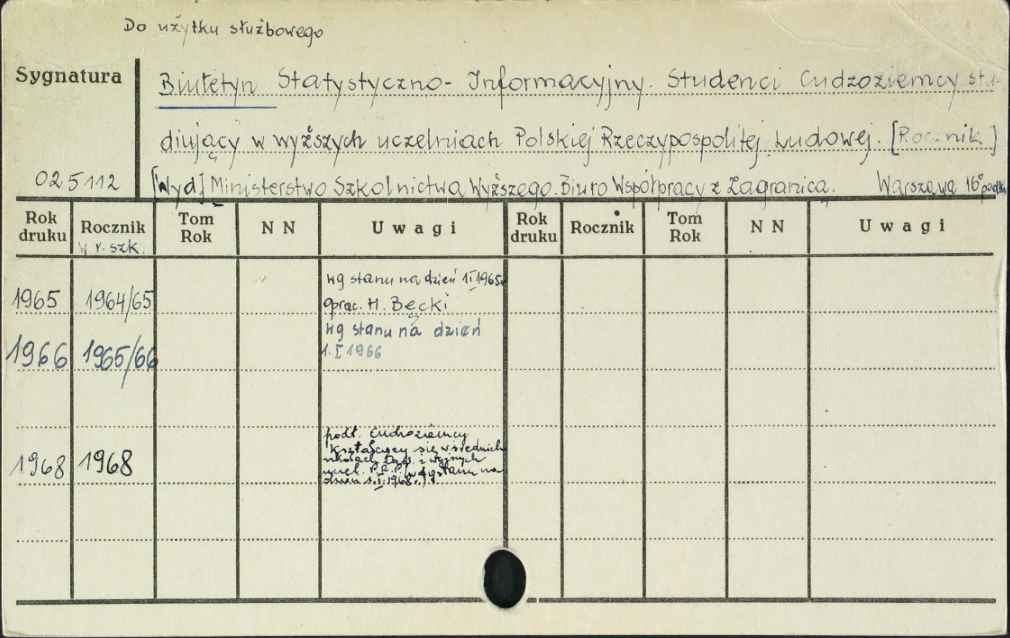 Do użytku służbowego
Sygnatura
Biuletyn Statystyczno-Informacyjny. Studenci Cudzoziemcy stu-
diujący w wyższych uczelniach Polskiej Rzeczypospolitej Ludowej. [Rocznik]
025112
[Wyd] Ministerstwo Szkolnictwa Wyższego. Biuro Współpracy z Zagranicą. Warszawa 16°
Rok druku Rocznik Tom Rok NN Uwagi Rok druku Rocznik Tom Rok NN Uwagi
w r. szk.
wg stanu na dzień 1 I 1965
1965 1964/65 oprac. H. Bęcki
wg stanu na dzień
1966 1965/66 1. I 1966
podt. Cudzoziemcy
kształcący się w średnich
1968 1968 szkołach i wyższych
uczel. P.R.L. (wg stanu na
dzień 1.I.1968 r.)